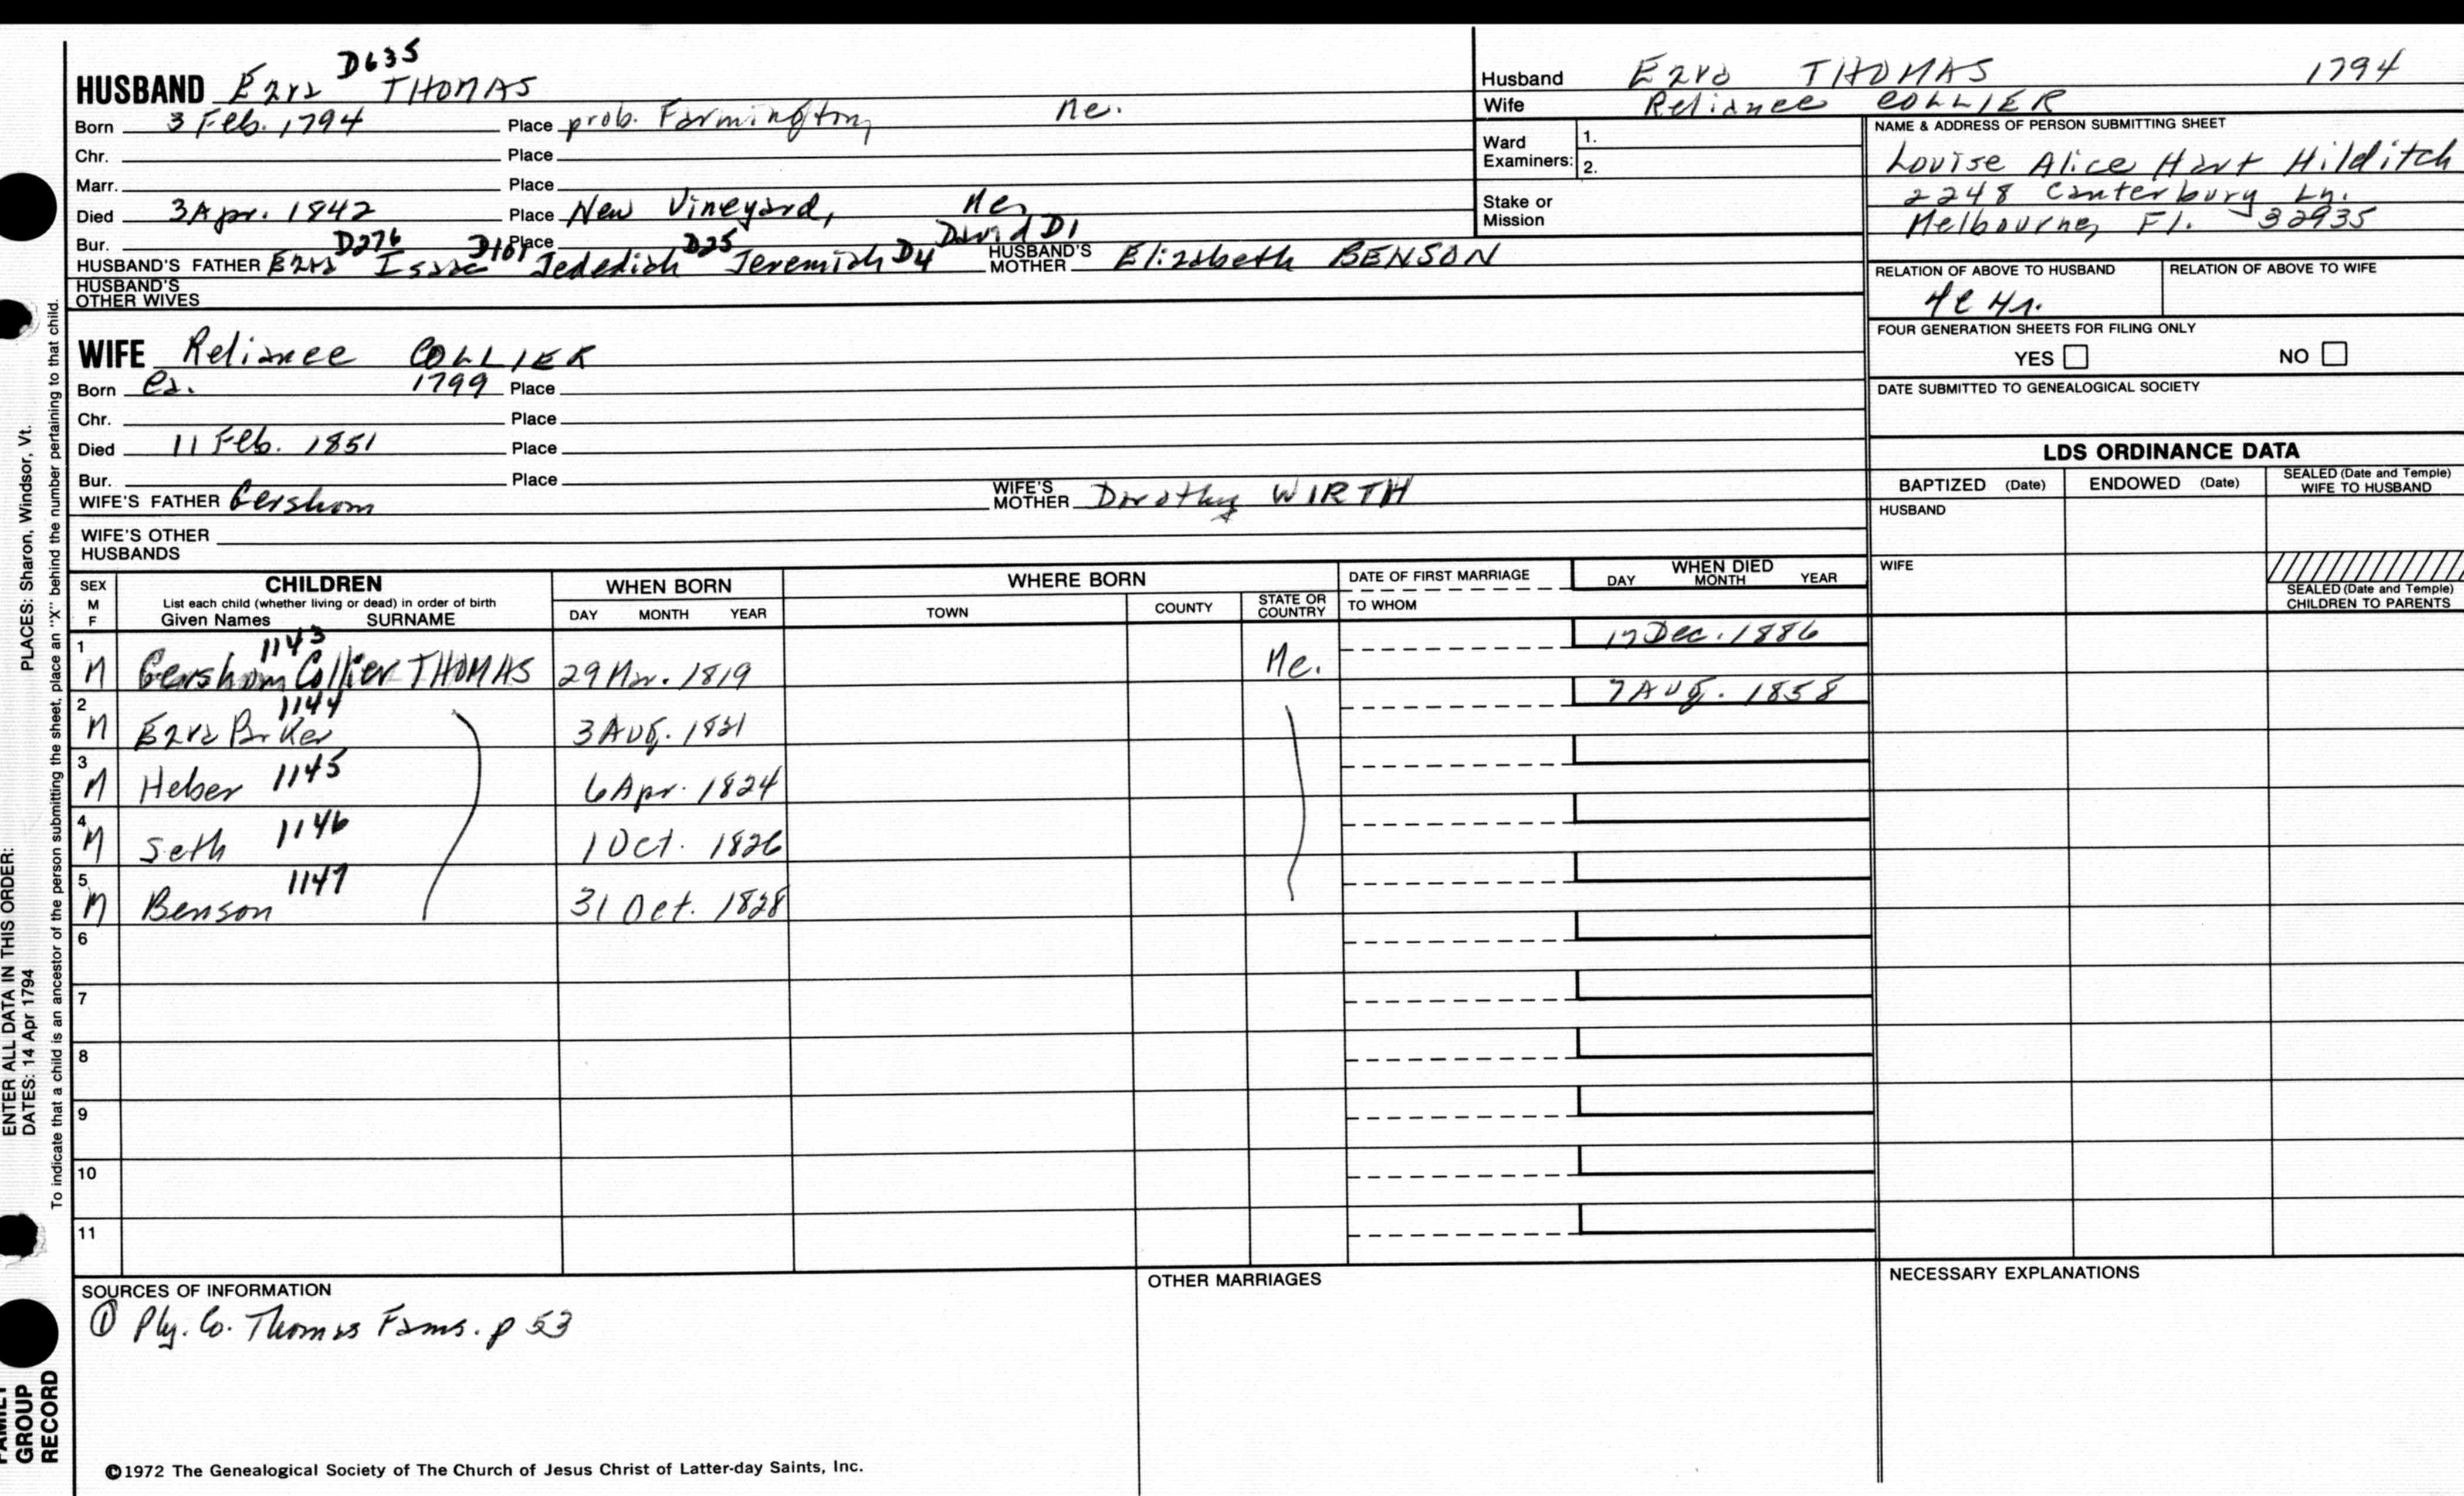 D635
HUSBAND Ezra THOMAS
Born 3 Feb. 1794 Place prob. Farmington, Me.
Chr. Place
Marr. Place
Died 3 Apr. 1842 Place New Vineyard, Me.
Bur. Place
D276 D101 D25 David D1
HUSBAND'S FATHER Ezra Isaac Jedediah Jeremiah D4 HUSBAND'S MOTHER Elizabeth BENSON
HUSBAND'S OTHER WIVES
Husband Ezra THOMAS 1794
Wife Reliance COLLIER
Ward Examiners: 1.
2.
Stake or Mission
NAME & ADDRESS OF PERSON SUBMITTING SHEET
Louise Alice Hart Hilditch
2248 Canterbury Ln.
Melbourne, Fl. 32935
RELATION OF ABOVE TO HUSBAND RELATION OF ABOVE TO WIFE
FOUR GENERATION SHEETS FOR FILING ONLY
YES NO
DATE SUBMITTED TO GENEALOGICAL SOCIETY
WIFE Reliance COLLIER
Born ca. 1799 Place
Chr. Place
Died 11 Feb. 1851 Place
Bur. Place
WIFE'S FATHER Gershom WIFE'S MOTHER Dorothy WIRTH
WIFE'S OTHER HUSBANDS
LDS ORDINANCE DATA
BAPTIZED (Date) ENDOWED (Date) SEALED (Date and Temple) WIFE TO HUSBAND
HUSBAND
WIFE
SEALED (Date and Temple) CHILDREN TO PARENTS
SEX M F CHILDREN WHEN BORN WHERE BORN DATE OF FIRST MARRIAGE WHEN DIED
List each child (whether living or dead) in order of birth
Given Names SURNAME DAY MONTH YEAR TOWN COUNTY STATE OR COUNTRY TO WHOM DAY MONTH YEAR
1143 17 Dec. 1886
1 M Gershom Collier THOMAS 29 Mar. 1819 Me.
1144 7 Aug. 1858
2 M Ezra Parker 3 Aug. 1821
3 M Heber 1145 6 Apr. 1824
4 M Seth 1146 1 Oct. 1826
5 M Benson 1147 31 Oct. 1828
6
7
8
9
10
11
SOURCES OF INFORMATION
① Ply. Co. Thomas Fams. p 53
OTHER MARRIAGES
NECESSARY EXPLANATIONS
©1972 The Genealogical Society of The Church of Jesus Christ of Latter-day Saints, Inc.
ENTER ALL DATA IN THIS ORDER:
DATES: 14 Apr 1794 PLACES: Sharon, Windsor, Vt.
To indicate that a child is an ancestor of the person submitting the sheet, place an "X" behind the number pertaining to that child.
FAMILY
GROUP
RECORD